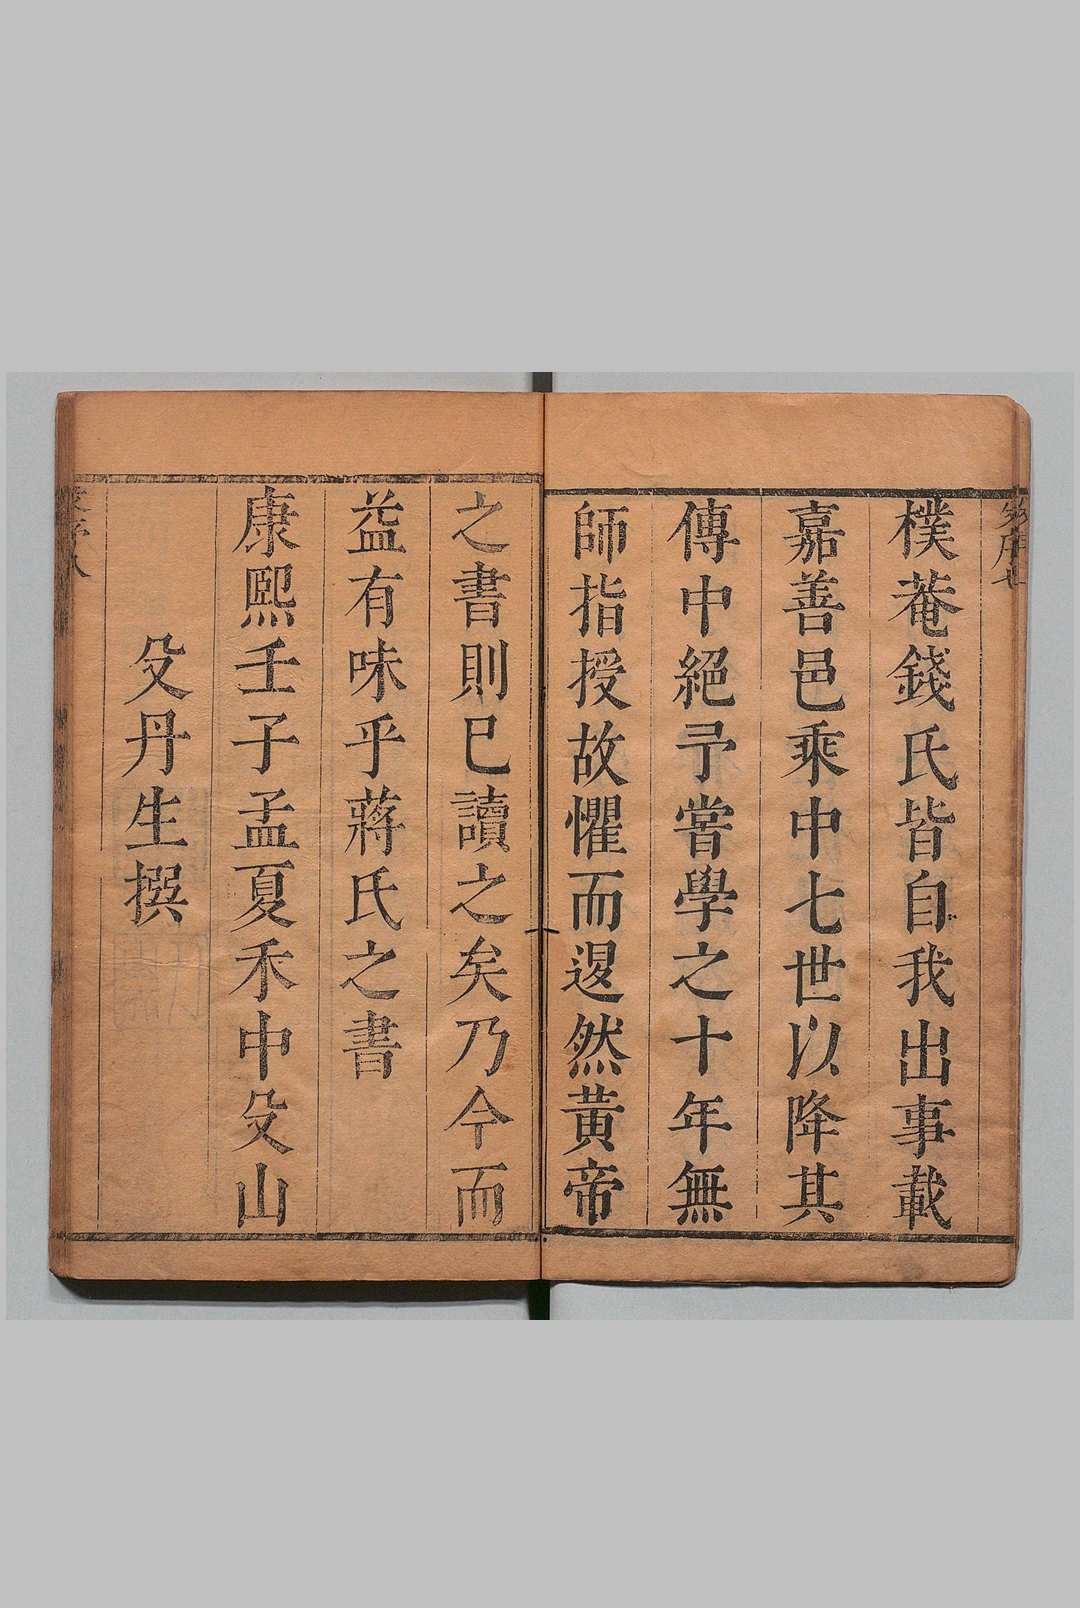 樸菴錢氏皆自我出事載
嘉善邑乘中七世以降其
傳中絕予嘗學之十年無
師指授故懼而遏然黃帝
之書則已讀之矣乃今而
益有味乎蔣氏之書
康熙壬子孟夏禾中殳山
殳丹生撰